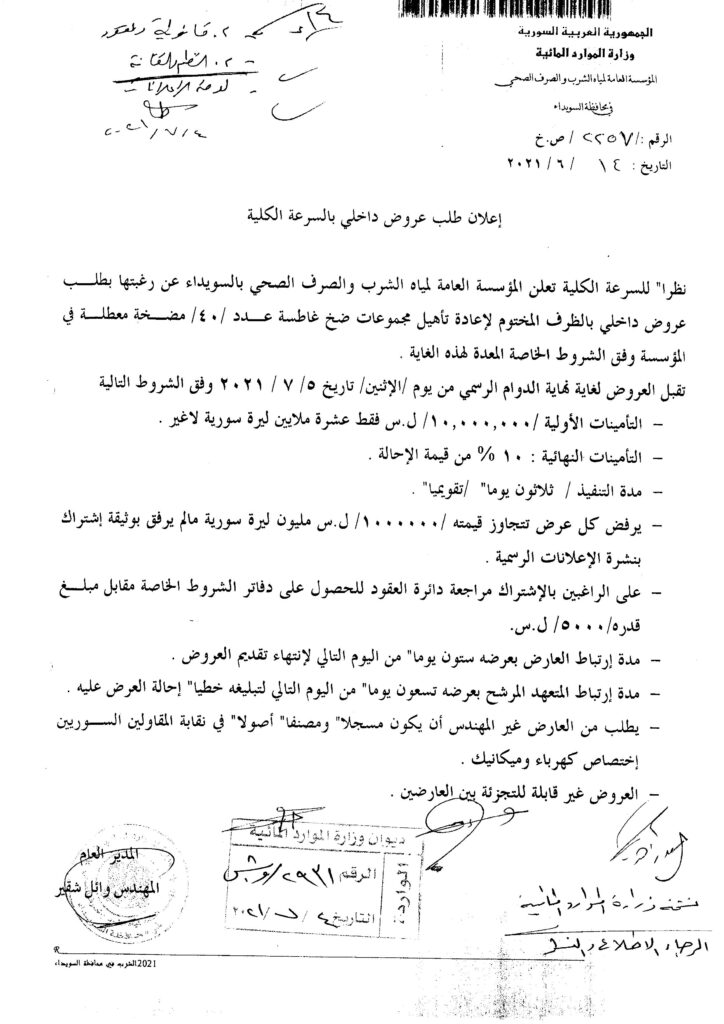 الجمهورية العربية السورية
وزارة الموارد المائية
المؤسسة العامة لمياه الشرب والصرف الصحي
في محافظة السويداء
الرقم :/ ٢٢٥٧ / ص.خ
التاريخ : ١٤ / ٦ / ٢٠٢١
٢٠٢١/٧/٤
إعلان طلب عروض داخلي بالسرعة الكلية
نظرا" للسرعة الكلية تعلن المؤسسة العامة لمياه الشرب والصرف الصحي بالسويداء عن رغبتها بطلب
عروض داخلي بالظرف المختوم لإعادة تأهيل مجموعات ضخ غاطسة عدد /٤٠/ مضخة معطلة في
المؤسسة وفق الشروط الخاصة المعدة لهذه الغاية .
تقبل العروض لغاية نهاية الدوام الرسمي من يوم /الإثنين/ تاريخ ٥ / ٧ / ٢٠٢١ وفق الشروط التالية
– التأمينات الأولية /١٠,٠٠٠,٠٠٠/ ل.س فقط عشرة ملايين ليرة سورية لاغير .
– التأمينات النهائية : ١٠ % من قيمة الإحالة .
– مدة التنفيذ / ثلاثون يوما" /تقويميا" .
– يرفض كل عرض تتجاوز قيمته /١٠٠٠٠٠٠/ ل.س مليون ليرة سورية مالم يرفق بوثيقة إشتراك
بنشرة الإعلانات الرسمية .
– على الراغبين بالإشتراك مراجعة دائرة العقود للحصول على دفاتر الشروط الخاصة مقابل مبلغ
قدره/٥٠٠٠/ ل.س.
– مدة إرتباط العارض بعرضه ستون يوما" من اليوم التالي لإنتهاء تقديم العروض .
– مدة إرتباط المتعهد المرشح بعرضه تسعون يوما" من اليوم التالي لتبليغه خطيا" إحالة العرض عليه .
– يطلب من العارض غير المهندس أن يكون مسجلا" ومصنفا" أصولا" في نقابة المقاولين السوريين
إختصاص كهرباء وميكانيك .
– العروض غير قابلة للتجزئة بين العارضين .
المدير العام
المهندس وائل شقير
ديوان وزارة الموارد المائية
الوارد
الرقم ٢٩٣١
التاريخ ٤ / ٧ /٢٠٢١
نسخة وزارة الموارد المائية
الرجاء الاطلاع والنشر
R
2021الخرب في محافظة السويداء